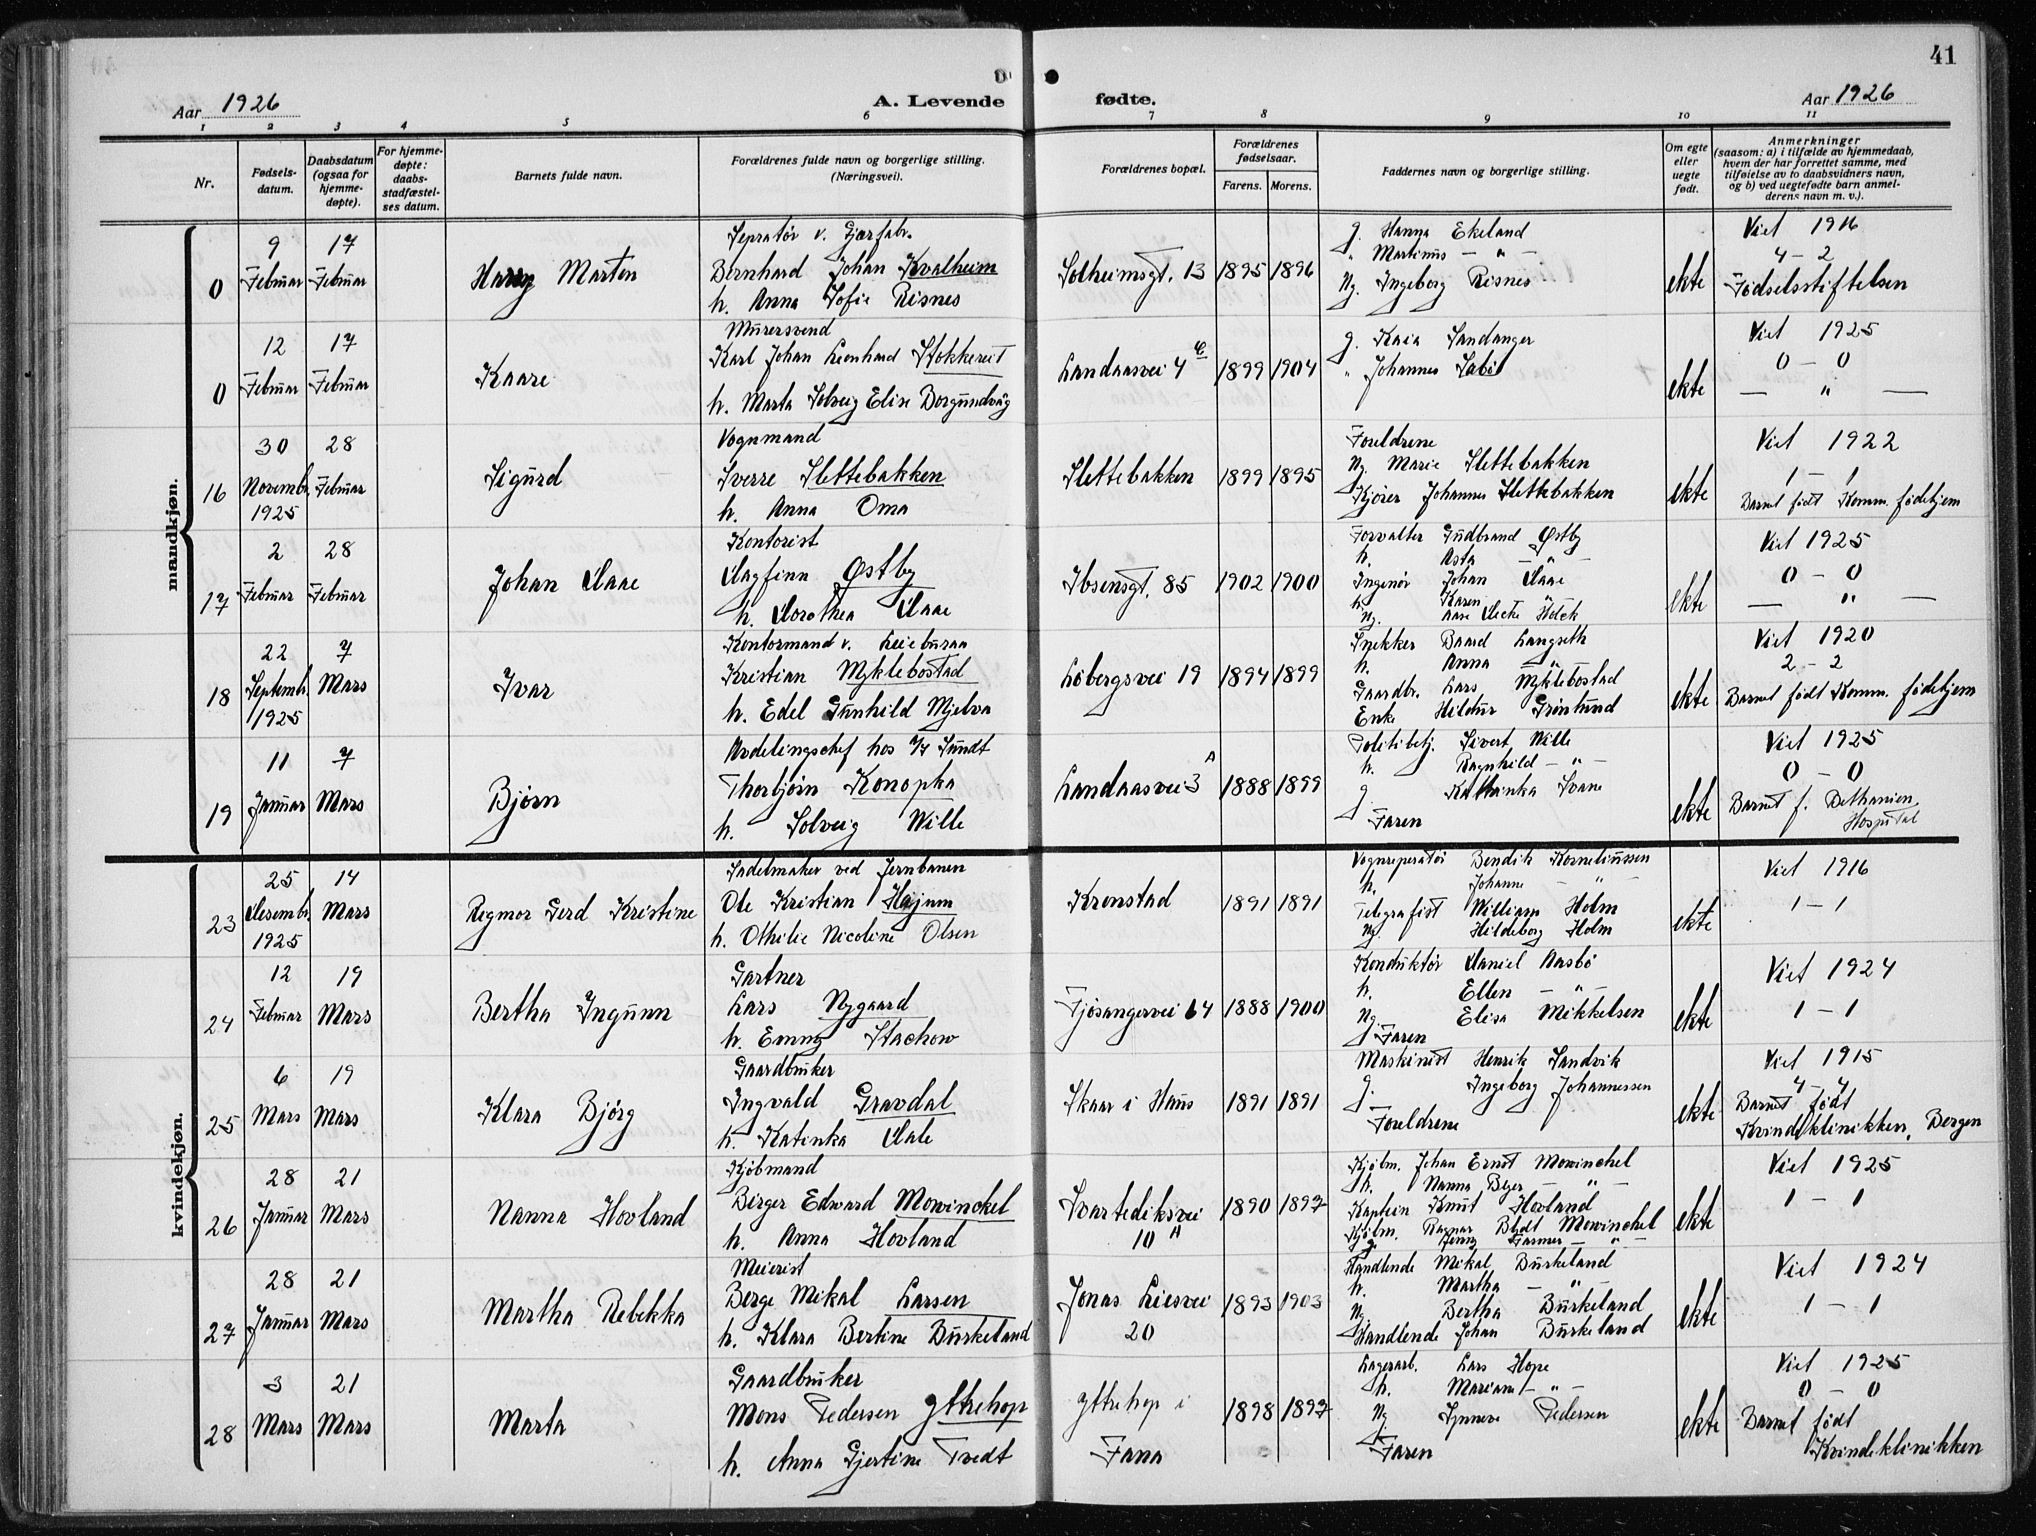 41
Aar 1926
A. Levende fødte.
Aar 1926
1 2 3 4 5 6 7 8 9 10 11
Nr.
Fødsels-
datum.
Daabsdatum
(ogsaa for
hjemme-
døpte).
For hjemme-
døpte:
daabs-
stadfæstel-
ses datum.
Barnets fulde navn.
Forældrenes fulde navn og borgerlige stilling.
(Næringsvei).
Forældrenes bopæl.
Forældrenes
fødselsaar.
Farens. Morens.
Faddernes navn og borgerlige stilling.
Om egte
eller
uegte
født.
Anmerkninger
(saasom: a) i tilfælde av hjemmedaab,
hvem der har forrettet samme, med
tilføielse av to daabsvidners navn,
og b) ved uegtefødte barn anmel-
derens navn m. v.).
mandkjøn.
0
9
Februar
17
Februar
Harry Marton
Sepratör v. Gjærfabr.
Bernhard Johan Kvalheim
h. Anna Sofie Risnes
Solheimsgt. 13
1895
1896
g. Hanna Ekeland
" Martinus — " —
Ng. Ingeborg Risnes
ekte
Viet 1916
4 – 2
Fødselsstiftelsen
0
12
Februar
17
Februar
Kaare
Murersvend
Karl Johan Leonhard Stokkereit
h. Marta Solveig Elise Borgundvåg
Landaasvei 4
1899
1904
g. Kaia Sandanger
" Johannes Sabø
ekte
Viet 1925
0 – 0
— " —
16
30
Novembr.
1925
28
Februar
Sigurd
Vognmand
Sverre Slettebakken
h. Anna Oma
Slettebakken
1899
1895
Foreldrene
Ng. Marie Slettebakken
Kjörer Johannes Slettebakken
ekte
Viet 1922
1 – 1
Barnet født Komm. fødehjem
17
2
Februar
28
Februar
Johan Daae
Kontorist
Dagfinn Østby
h. Dorothea Daae
Ibsensgt. 85
1902
1900
Forvalter Gudbrand Østby
h. Asta — " —
Ingeniør Johan Daae
h. Karen "
Ng. Aase Holck
ekte
Viet 1925
0 – 0
— " —
18
22
Septembr.
1925
7
Mars
Ivar
Kontormand v. Leieburaa
Kristian Myklebostad
h. Edel Gunhild Mjelva
Løbergsvei 19
1894
1899
Snekker Baard Langseth
h. Anna — " —
Gaardbr. Lars Myklebostad
Enke Hildur Grönlund
ekte
Viet 1920
2 – 2
Barnet født Komm. fødehjem
19
11
Januar
7
Mars
Bjørn
Avdelingschef hos A/S Sundt
Thorbjørn Konopka
h. Solveig Wille
Landaasvei 3 A
1888
1899
Politibetj. Sivert Wille
h. Ragnhild — " —
g. Kathinka Svane
Faren
ekte
Viet 1925
0 – 0
Barnet f. Bethanien
Hospital
kvindekjøn.
23
25
Desembr.
1925
14
Mars
Rigmor Gerd Kristine
Sadelmaker ved Jernbanen
Ole Kristian Hajum
h. Othilie Nicoline Olsen
Kronstad
1891
1891
Vognreperatör Bendik Korneliussen
h. Johanne — " —
Telegrafist William Holm
Ng. Hildeborg Holm
ekte
Viet 1916
1 – 1
24
12
Februar
19
Mars
Bertha Ingunn
Gartner
Lars Nygaard
h. Emmy Stachow
Fjøsangervei 64
1888
1900
Konduktör Daniel Aasbö
h. Ellen — " —
Ng. Elisa Mikkelsen
Faren
ekte
Viet 1924
1 – 1
25
6
Mars
19
Mars
Klara Bjørg
Gaardbruker
Ingvald Gravdal
h. Katinka Dale
Skaar i Haus
1891
1891
Maskinist Henrik Sandvik
g. Ingeborg Johannessen
Foreldrene
ekte
Viet 1915
4 – 4
Barnet født
Kvindeklinikken, Bergen
26
28
Januar
21
Mars
Nanna Hovland
Kjöbmand
Birger Edward Mowinckel
h. Anna Hovland
Svartediksvei
10 A
1890
1897
Kjøbm. Johan Ernst Mowinckel
h. Nanna — " —
Kaptein Knut Hovland
Kjøbm. Ragnar Blydt Mowinckel
g. Jenny — " —
ekte
Viet 1925
1 – 1
27
28
Januar
21
Mars
Martha Rebekka
Meierist
Berge Mikal Larsen
h. Klara Bertine Burkeland
Jonas Liesvei
20
1893
1903
Handlende Mikal Burkeland
h. Martha — " —
Ng. Bertha Burkeland
Handlende Johan Burkeland
ekte
Viet 1924
1 – 1
28
3
Mars
21
Mars
Marta
Gaardbruker
Mons Pedersen Yttrehop
h. Anna Gjertine Tvedt
Yttrehop i
Fana
1898
1897
Lagerarb. Lars Hope
h. Mariam — " —
Ng Synneve Pedersen
Faren
ekte
Viet 1925
0 – 0
Barnet født
Kvindeklinikken